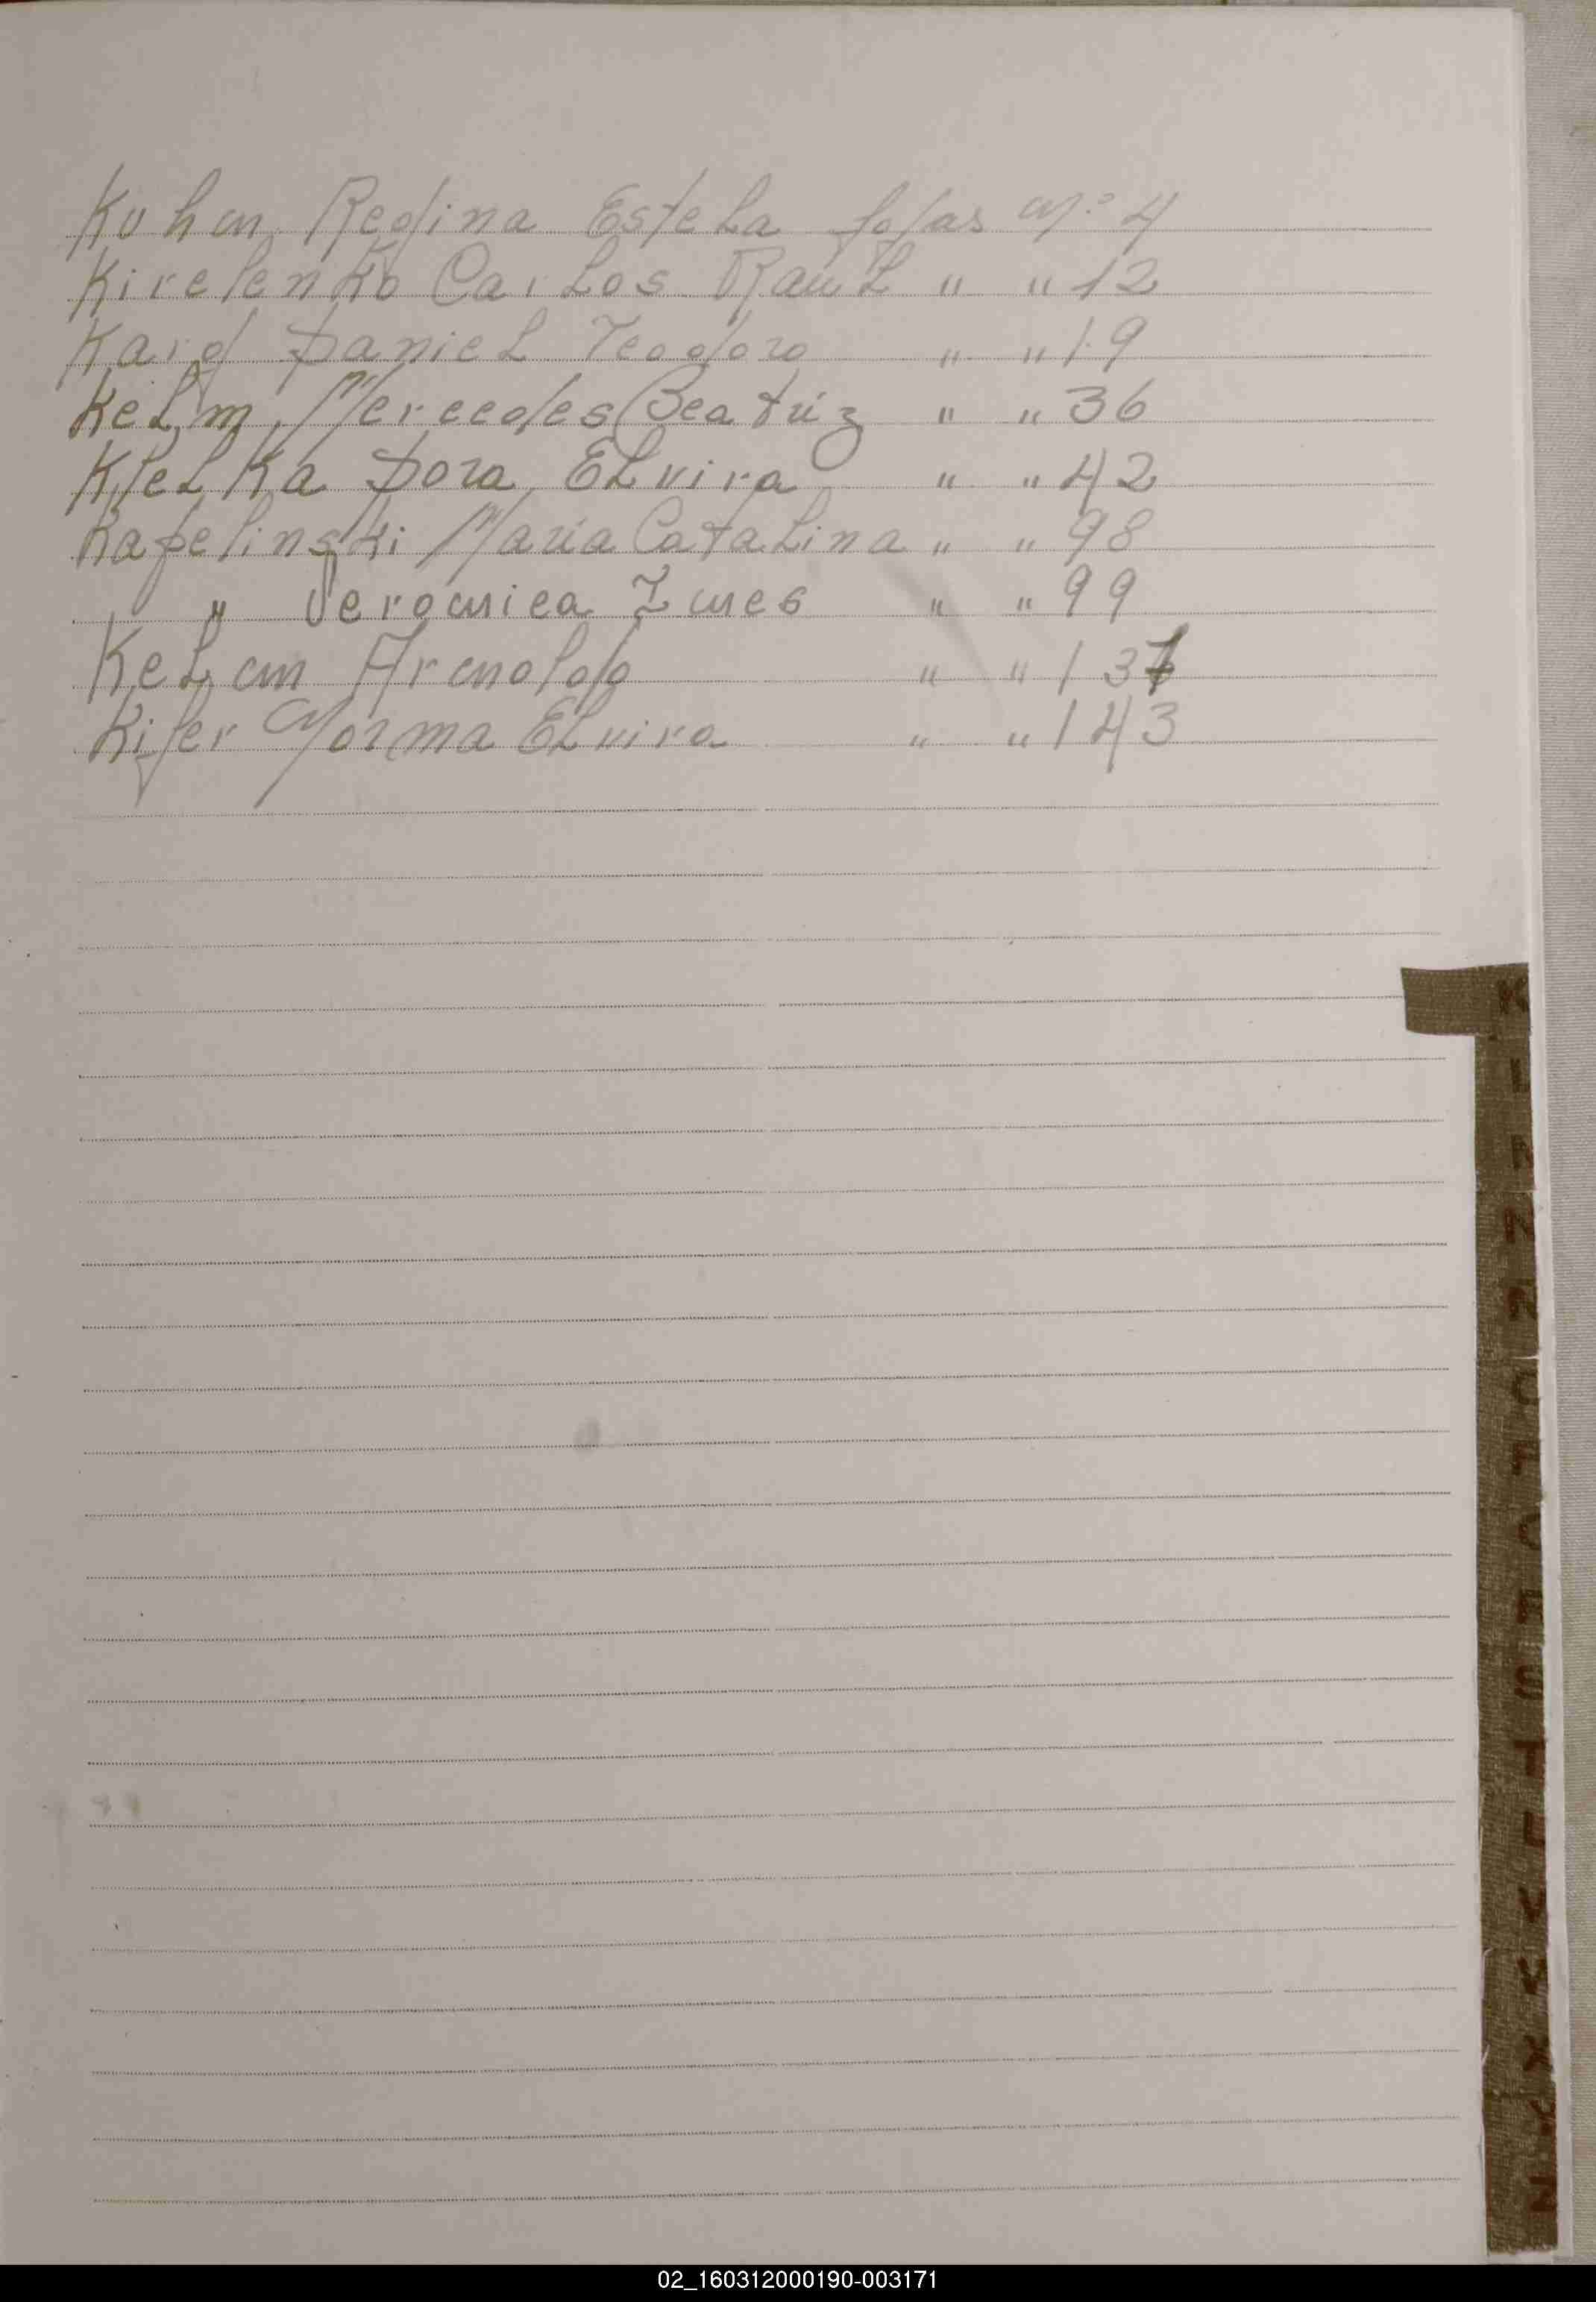 Kuhn Regina Estela fojas Nº 4
Kirelenko Carlos Raúl " " 12
Karg Daniel Teodoro " " 19
Kelm Mercedes Beatríz " " 36
Klelka Dora Elvira " " 42
Kapelinski María Catalina " " 98
" Veronica Ines " " 99
Keln Arnoldo " " 137
Kifer Norma Elvira " " 143
K
L
02_160312000190-003171